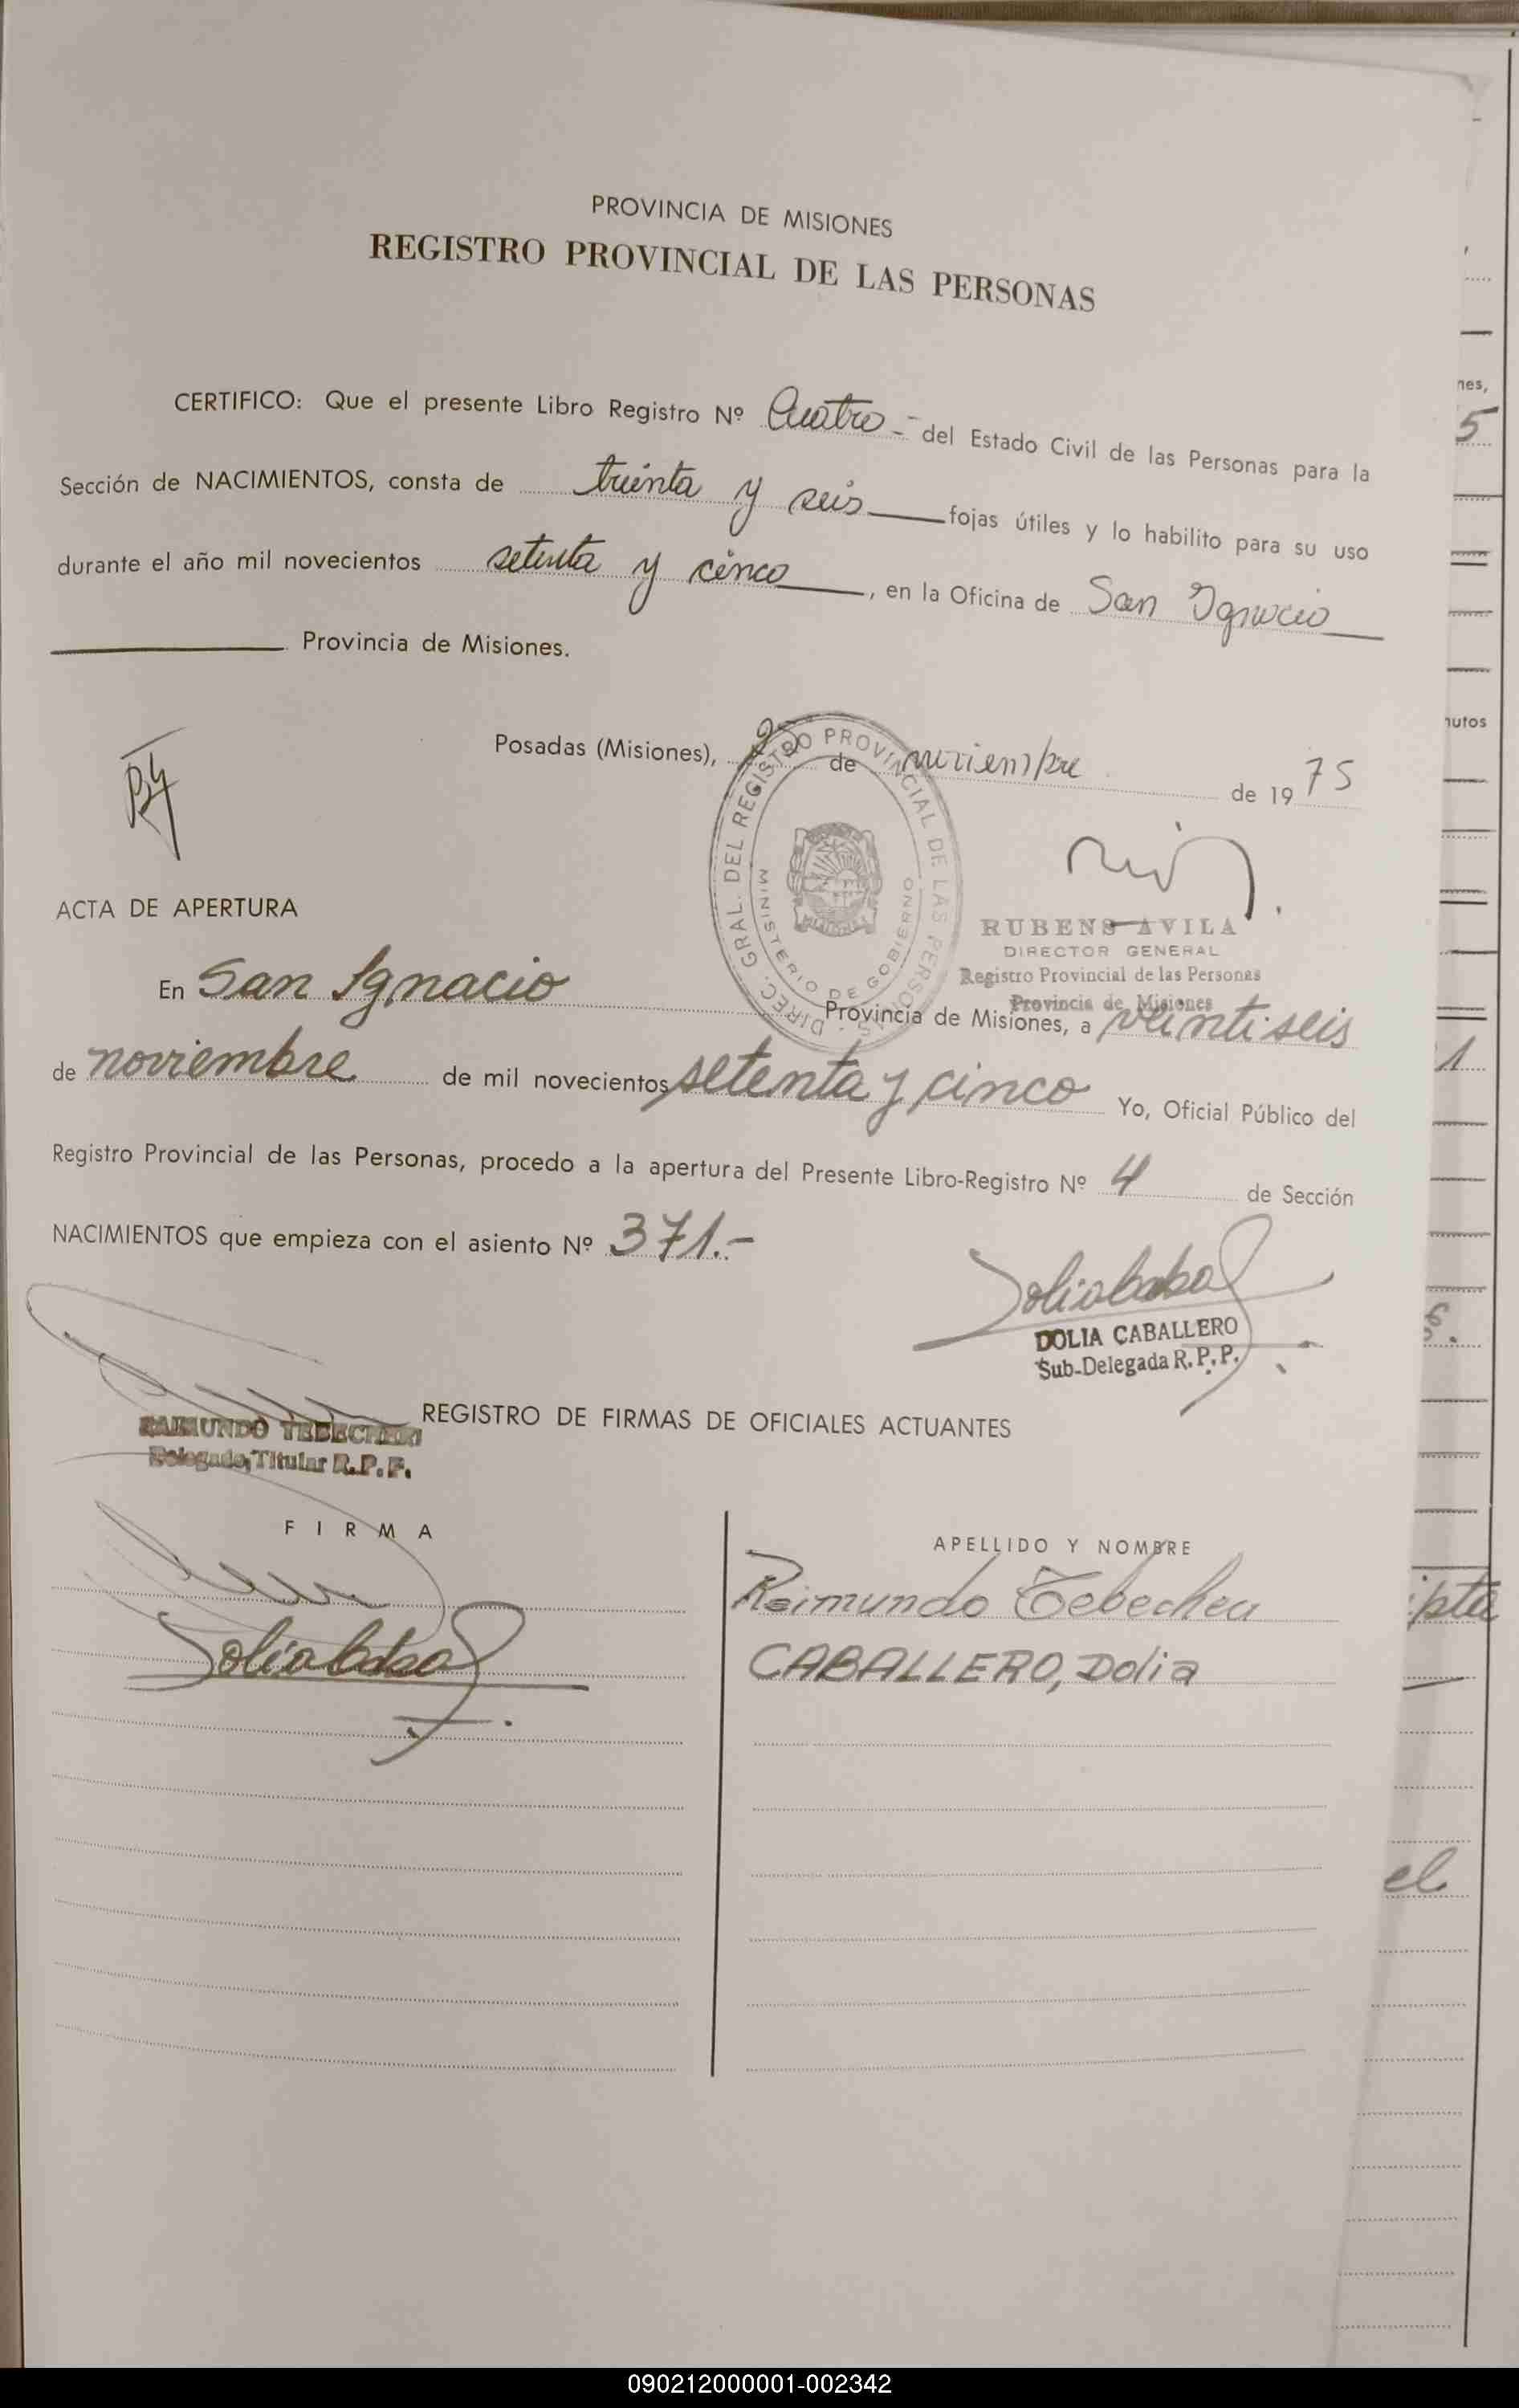 PROVINCIA DE MISIONES
REGISTRO PROVINCIAL DE LAS PERSONAS
nes,
CERTIFICO: Que el presente Libro Registro Nº Cuatro - del Estado Civil de las Personas para la
5
Sección de NACIMIENTOS, consta de treinta y seis fojas útiles y lo habilito para su uso
durante el año mil novecientos setenta y cinco, en la Oficina de San Ignacio
Provincia de Misiones.
nutos
Posadas (Misiones), de noviembre de 1975
DIREC. GRAL. DEL REGISTRO PROVINCIAL DE LAS PERSONAS
MINISTERIO DE GOBIERNO
RUBENS AVILA
DIRECTOR GENERAL
Registro Provincial de las Personas
Provincia de Misiones
ACTA DE APERTURA
En San Ignacio Provincia de Misiones, a veintiseis
de noviembre de mil novecientos setenta y cinco Yo, Oficial Público del
1
Registro Provincial de las Personas, procedo a la apertura del Presente Libro-Registro Nº 4 de Sección
NACIMIENTOS que empieza con el asiento Nº 371.-
DOLIA CABALLERO
Sub-Delegada R.P.P.
RAIMUNDO TEBECHERI
Delegado Titular R.P.P.
REGISTRO DE FIRMAS DE OFICIALES ACTUANTES
FIRMA
APELLIDO Y NOMBRE
Raimundo
CABALLERO, Dolia
el
090212000001-002342